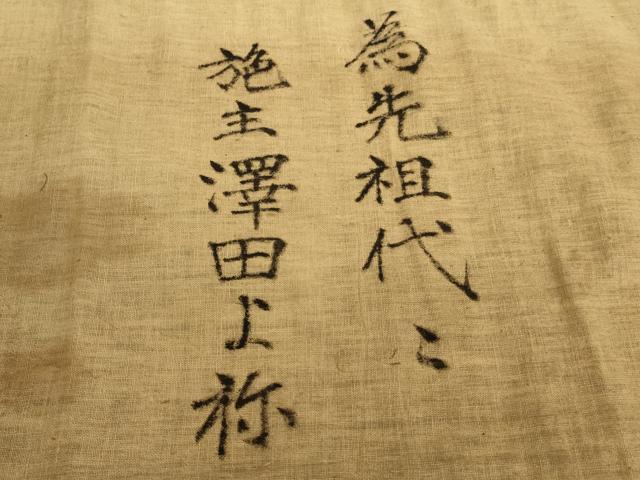 為先祖代々
施主澤田よ祢